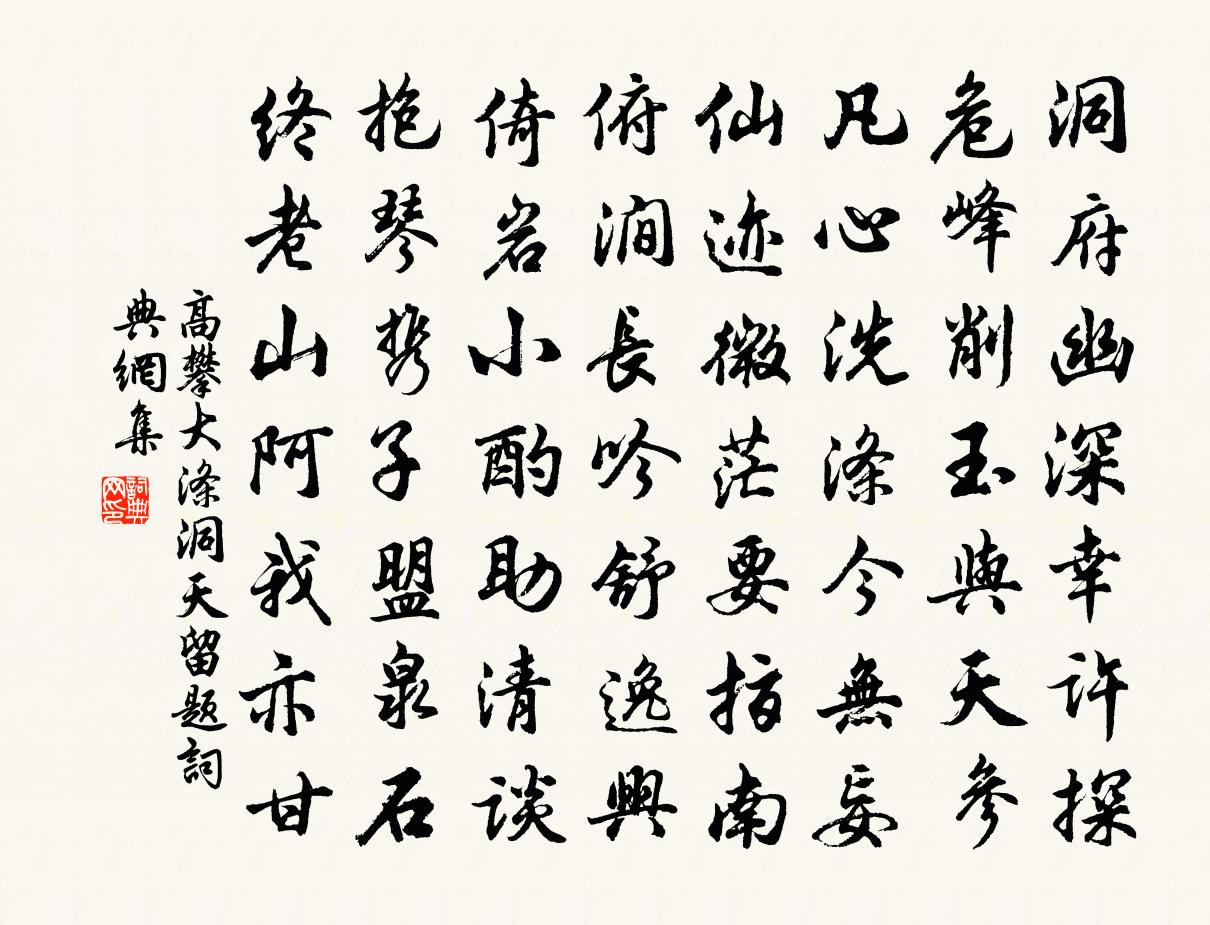 洞府幽深幸许探
危峰削玉與天參
凡心洗滌今無妄
仙迹微茫要指南
俯澗長吟舒逸興
倚岩小酌助清談
抱琴携子盟泉石
终老山阿我亦甘
高攀大滌洞天留题詞
典網集
詞典
网印